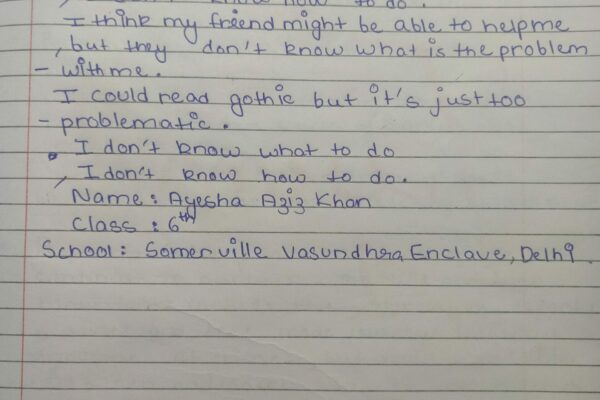 know how to do.
I think my friend might be able to help me
, but they don't know what is the problem
- with me.
I could read gothic but it's just too
- problematic.
• I don't know what to do
, I don't know how to do.
Name: Ayesha Aziz Khan
Class : 6th
School: Somerville Vasundhra Enclave, Delhi.